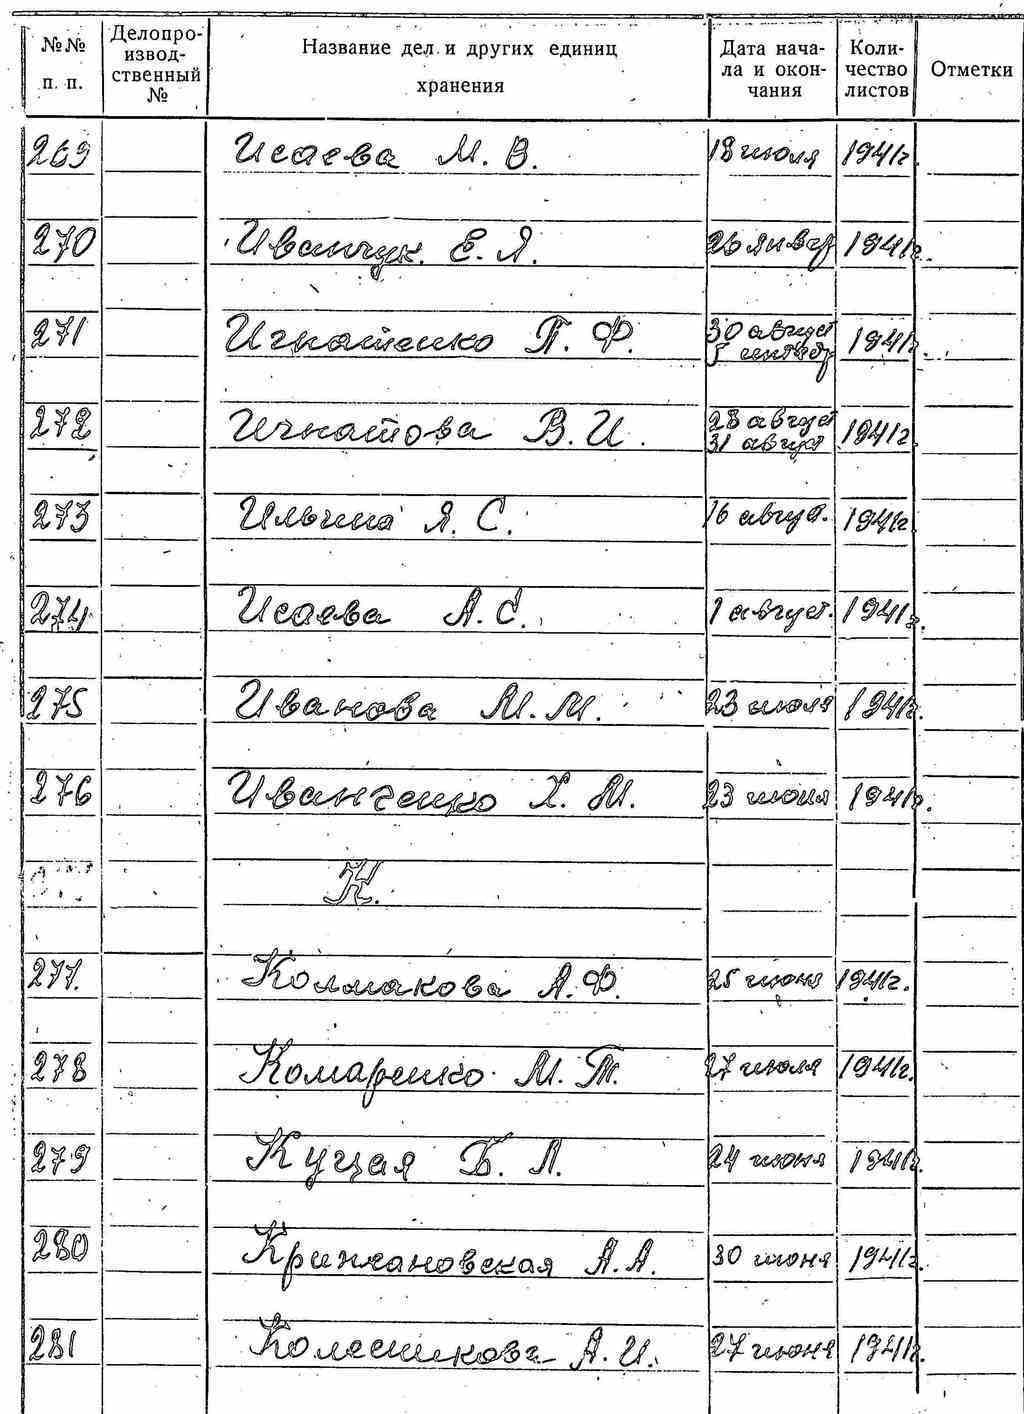 №№ п. п. Делопро-извод-ственный № Название дел и других единиц хранения Дата нача-ла и окон-чания Коли-чество листов Отметки
269 Исаева М. В. 18 июля 1941г.
270 Иванчук Е. Я. 26 январ 1941г.
271 Игнатенко П. Ф. 30 август 1941г.
5 сентябр
272 Игнатова В. И. 28 август 1941г.
31 август
273 Ильина Я. С. 16 август. 1941г.
274 Исаева А. С. 1 август. 1941г.
275 Иванова М. М. 23 июля 1941г.
276 Иванченко Х. М. 23 июня 1941г.
К.
277. Колмакова А. Ф. 25 июня 1941г.
278 Комаренко М. Т. 27 июля 1941г.
279 Куцая Б. Л. 24 июня 1941г.
280 Крижановская А. А. 30 июня 1941г.
281 Колесникова А. И. 27 июня 1941г.